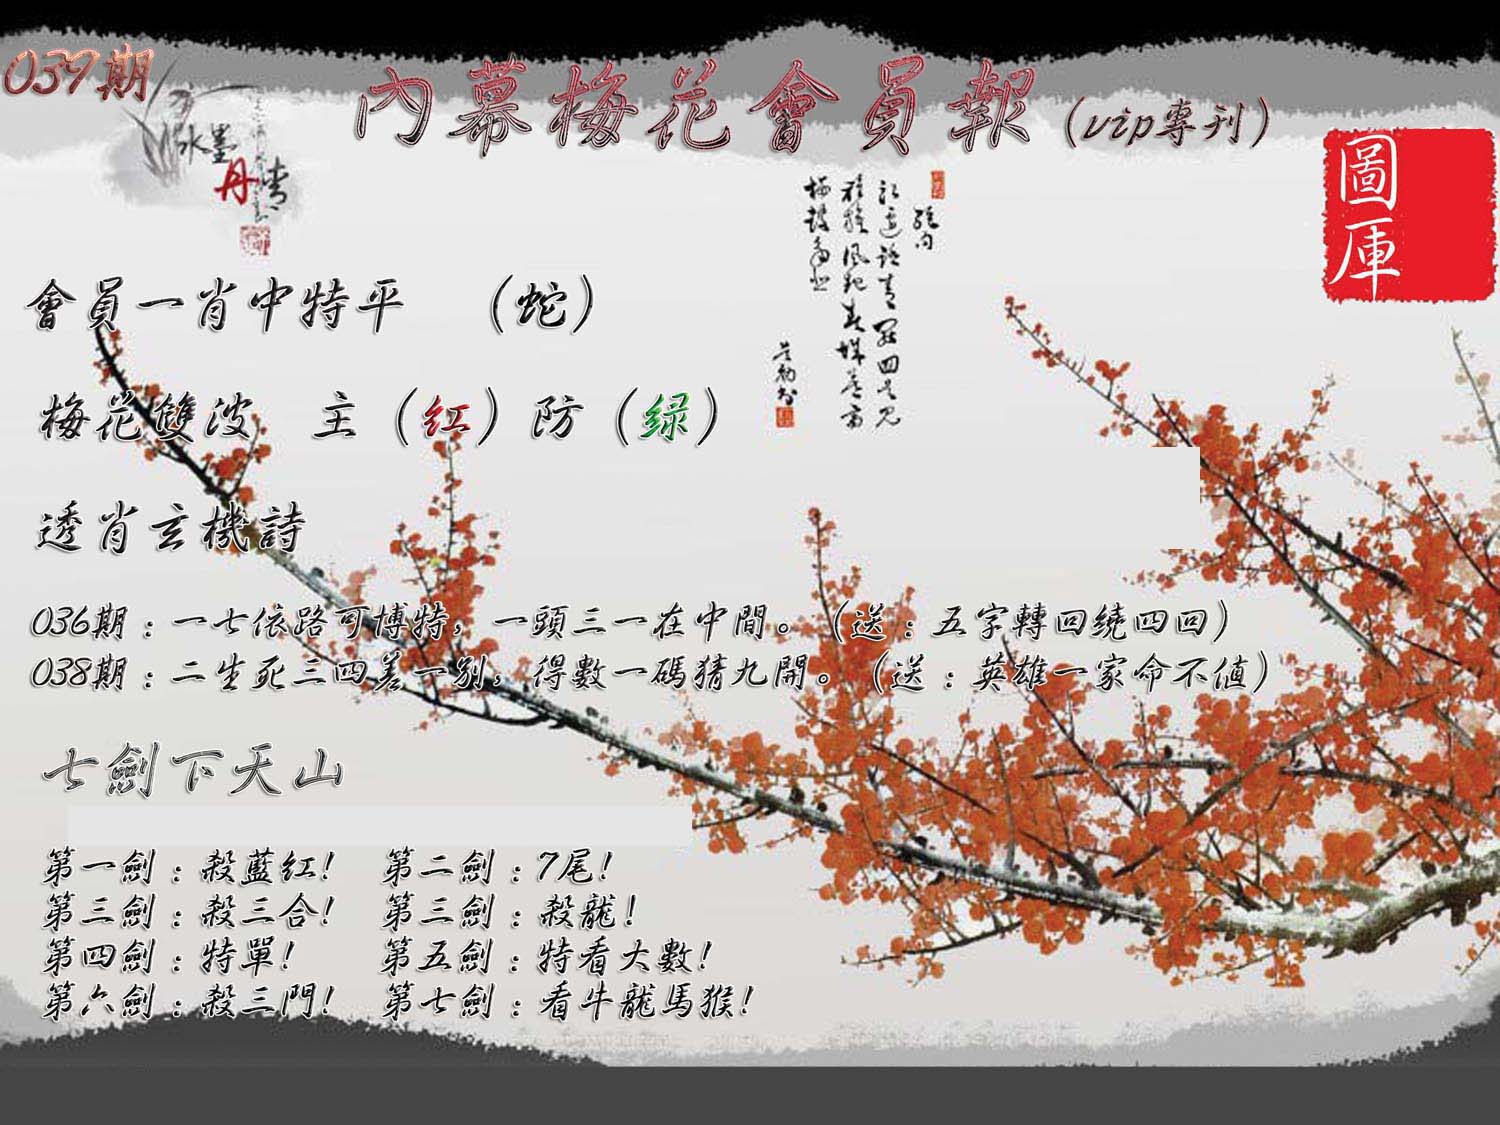 039期
內幕梅花會員報（vip專刊）
水墨
丹青
圖庫
會員一肖中特平 （蛇）
梅花雙波 主（紅）防（绿）
透肖玄機詩
036期：一七依路可博特，一頭三一在中間。（送：五字轉回繞四回）
038期：二生死三四差一别，得數一碼猜九開。（送：英雄一家命不值）
七劍下天山
第一劍：殺藍紅! 第二劍：7尾!
第三劍：殺三合! 第三劍：殺龍!
第四劍：特單! 第五劍：特看大數!
第六劍：殺三門! 第七劍：看牛龍馬猴!